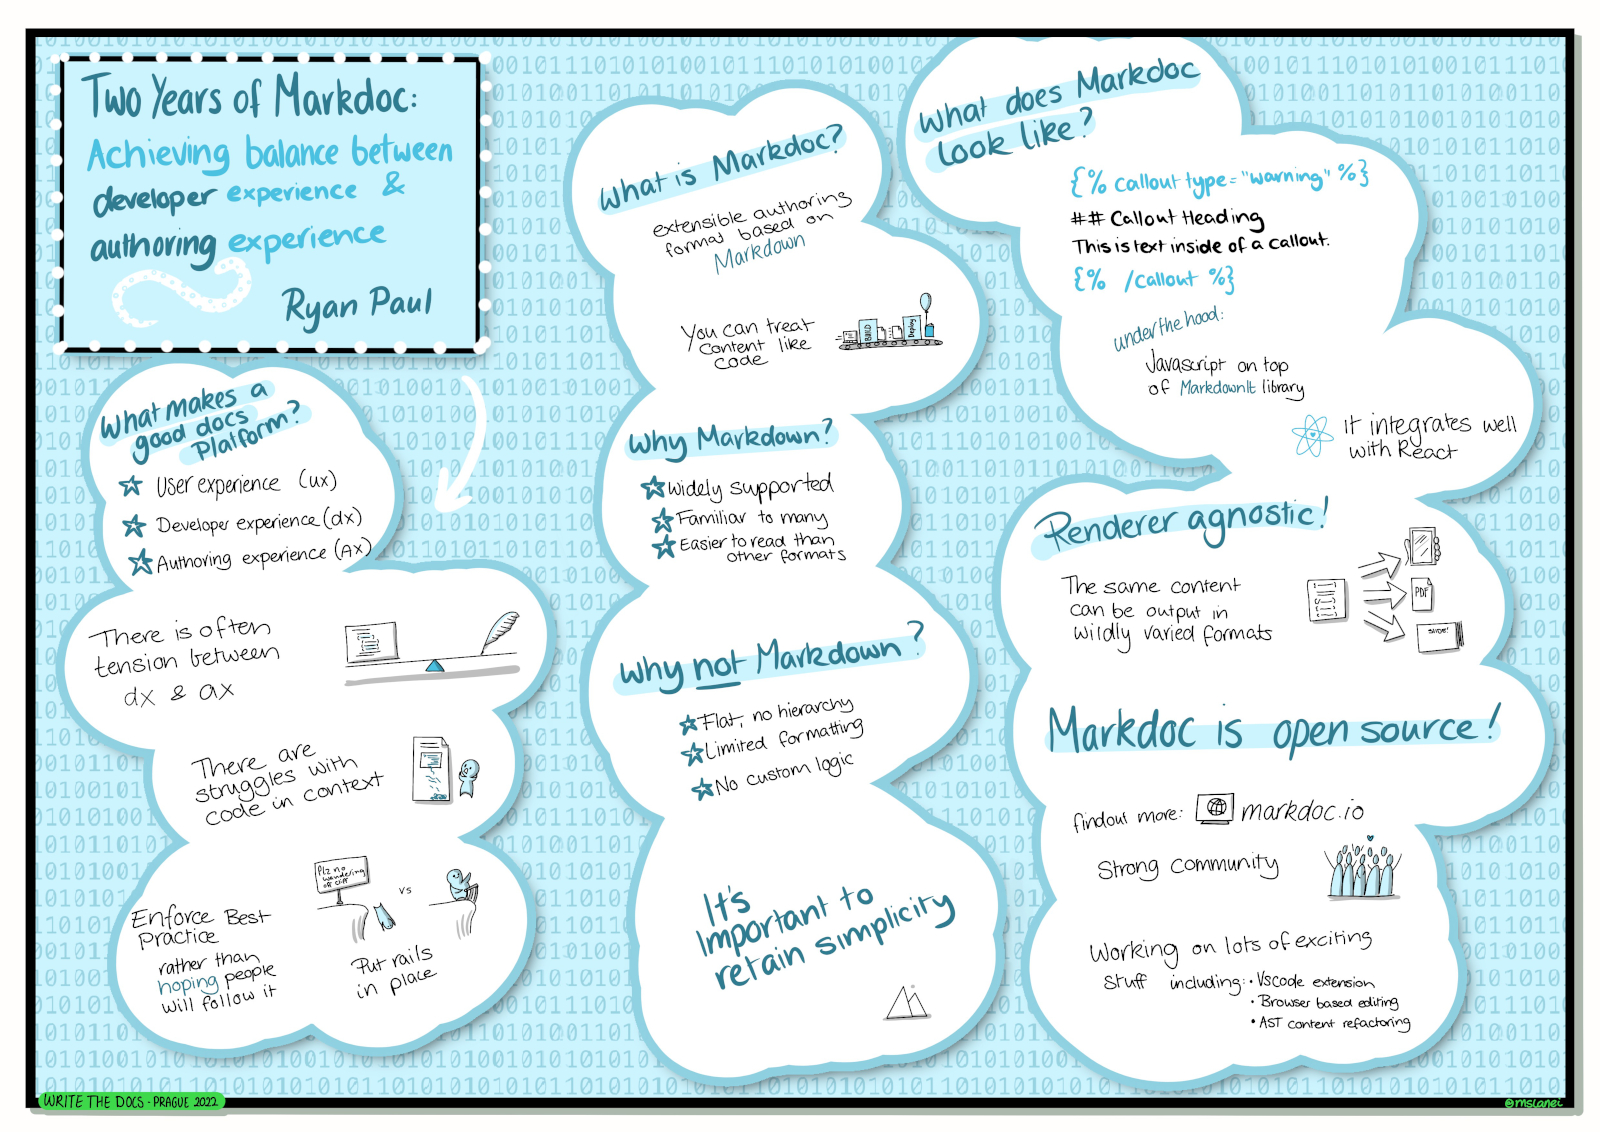 Two Years of Markdoc:
Achieving balance between
developer experience &
authoring experience
Ryan Paul
What makes a
good docs
Platform?
User experience (ux)
Developer experience (dx)
Authoring experience (AX)
There is often
tension between
dx & ax
There are
struggles with
code in context
Enforce Best
Practice
rather than
hoping people
will follow it
Plz no
wandering
off cliff
vs
Put rails
in place
What is Markdoc?
extensible authoring
format based on
Markdown
You can treat
content like
code
BUILD
Deploy
Why Markdown?
Widely supported
Familiar to many
Easier to read than
other formats
Why not Markdown?
Flat, no hierarchy
Limited formatting
No custom logic
It's
Important to
retain simplicity
What does Markdoc
Look like?
{% callout type="warning" %}
## Callout Heading
This is text inside of a callout.
{% /callout %}
under the hood:
Javascript on top
of MarkdownIt library
it integrates well
with React
Renderer agnostic!
The same content
can be output in
wildly varied formats
PDF
Markdoc is open source!
findout more: markdoc.io
Strong community
Working on lots of exciting
stuff including: • Vscode extension
• Browser based editing
• AST content refactoring
WRITE THE DOCS - PRAGUE 2022
@mslanei